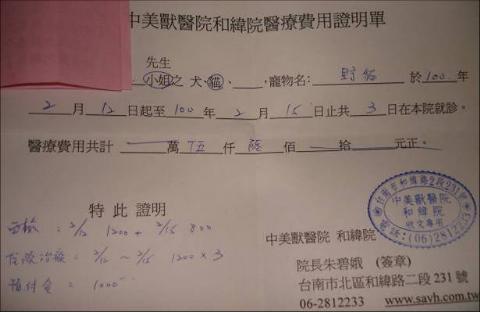 中美獸醫院和緯院醫療費用證明單
先生
小姐之 犬、貓、____,寵物名: 野貓 於100年
2月12日起至100年2月15日止共3日在本院就診。
醫療費用共計 一 萬 伍 仟 陸 佰 一 拾 元正。
特此證明
血檢: 2/12 1200 + 2/15 800
住院治療: 2/12 ~ 2/15 1200 × 3
預付金: 1000
台南市和緯路2段231號
中美獸醫院
和緯院
收文專用
電話:(06)2812233
中美獸醫院 和緯院
院長朱碧娥 (簽章)
台南市北區和緯路二段 231 號
06-2812233 www.savh.com.tw